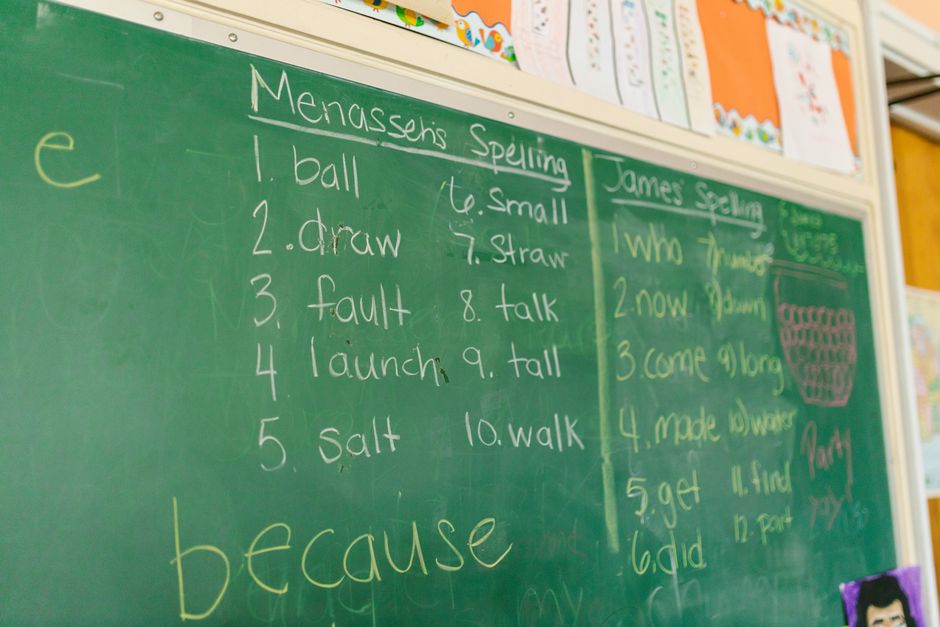 e
Menasseh's Spelling
1. ball
2. draw
3. fault
4 launch
5. salt
6. Small
7. Straw
8. talk
9. tall
10. walk
because
James' Spelling
1 who
2. now
3. come
4. made
5. get
6. did
7) number
8) down
9) long
10) water
11. find
12. part
Party
yay